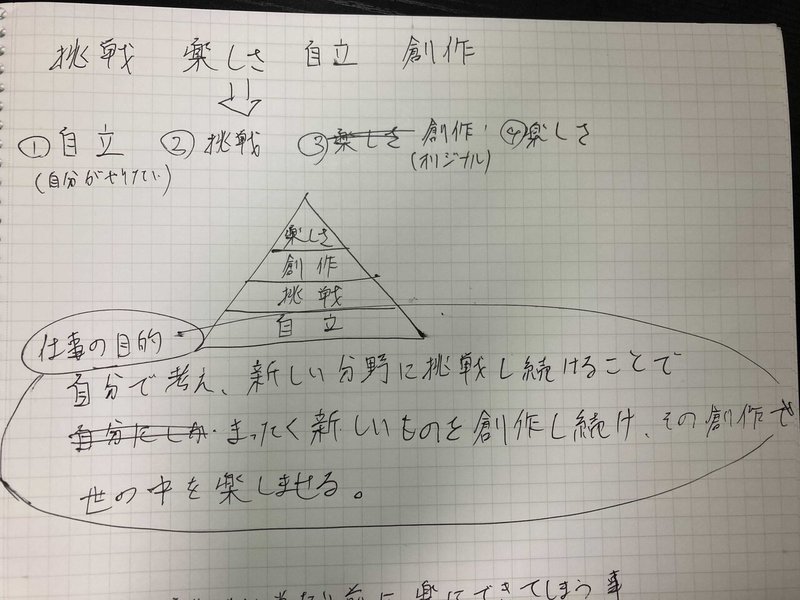 挑戦 楽しさ 自立 創作
① 自立 ② 挑戦 ③ 楽しさ 創作 ④ 楽しさ
(自分がやりたい) (オリジナル)
楽しさ
創作
挑戦
自立
仕事の目的
自分で考え、新しい分野に挑戦し続けることで
自分にしか まったく新しいものを創作し続け、その創作で
世の中を楽しませる。
前に楽にできてしまう事